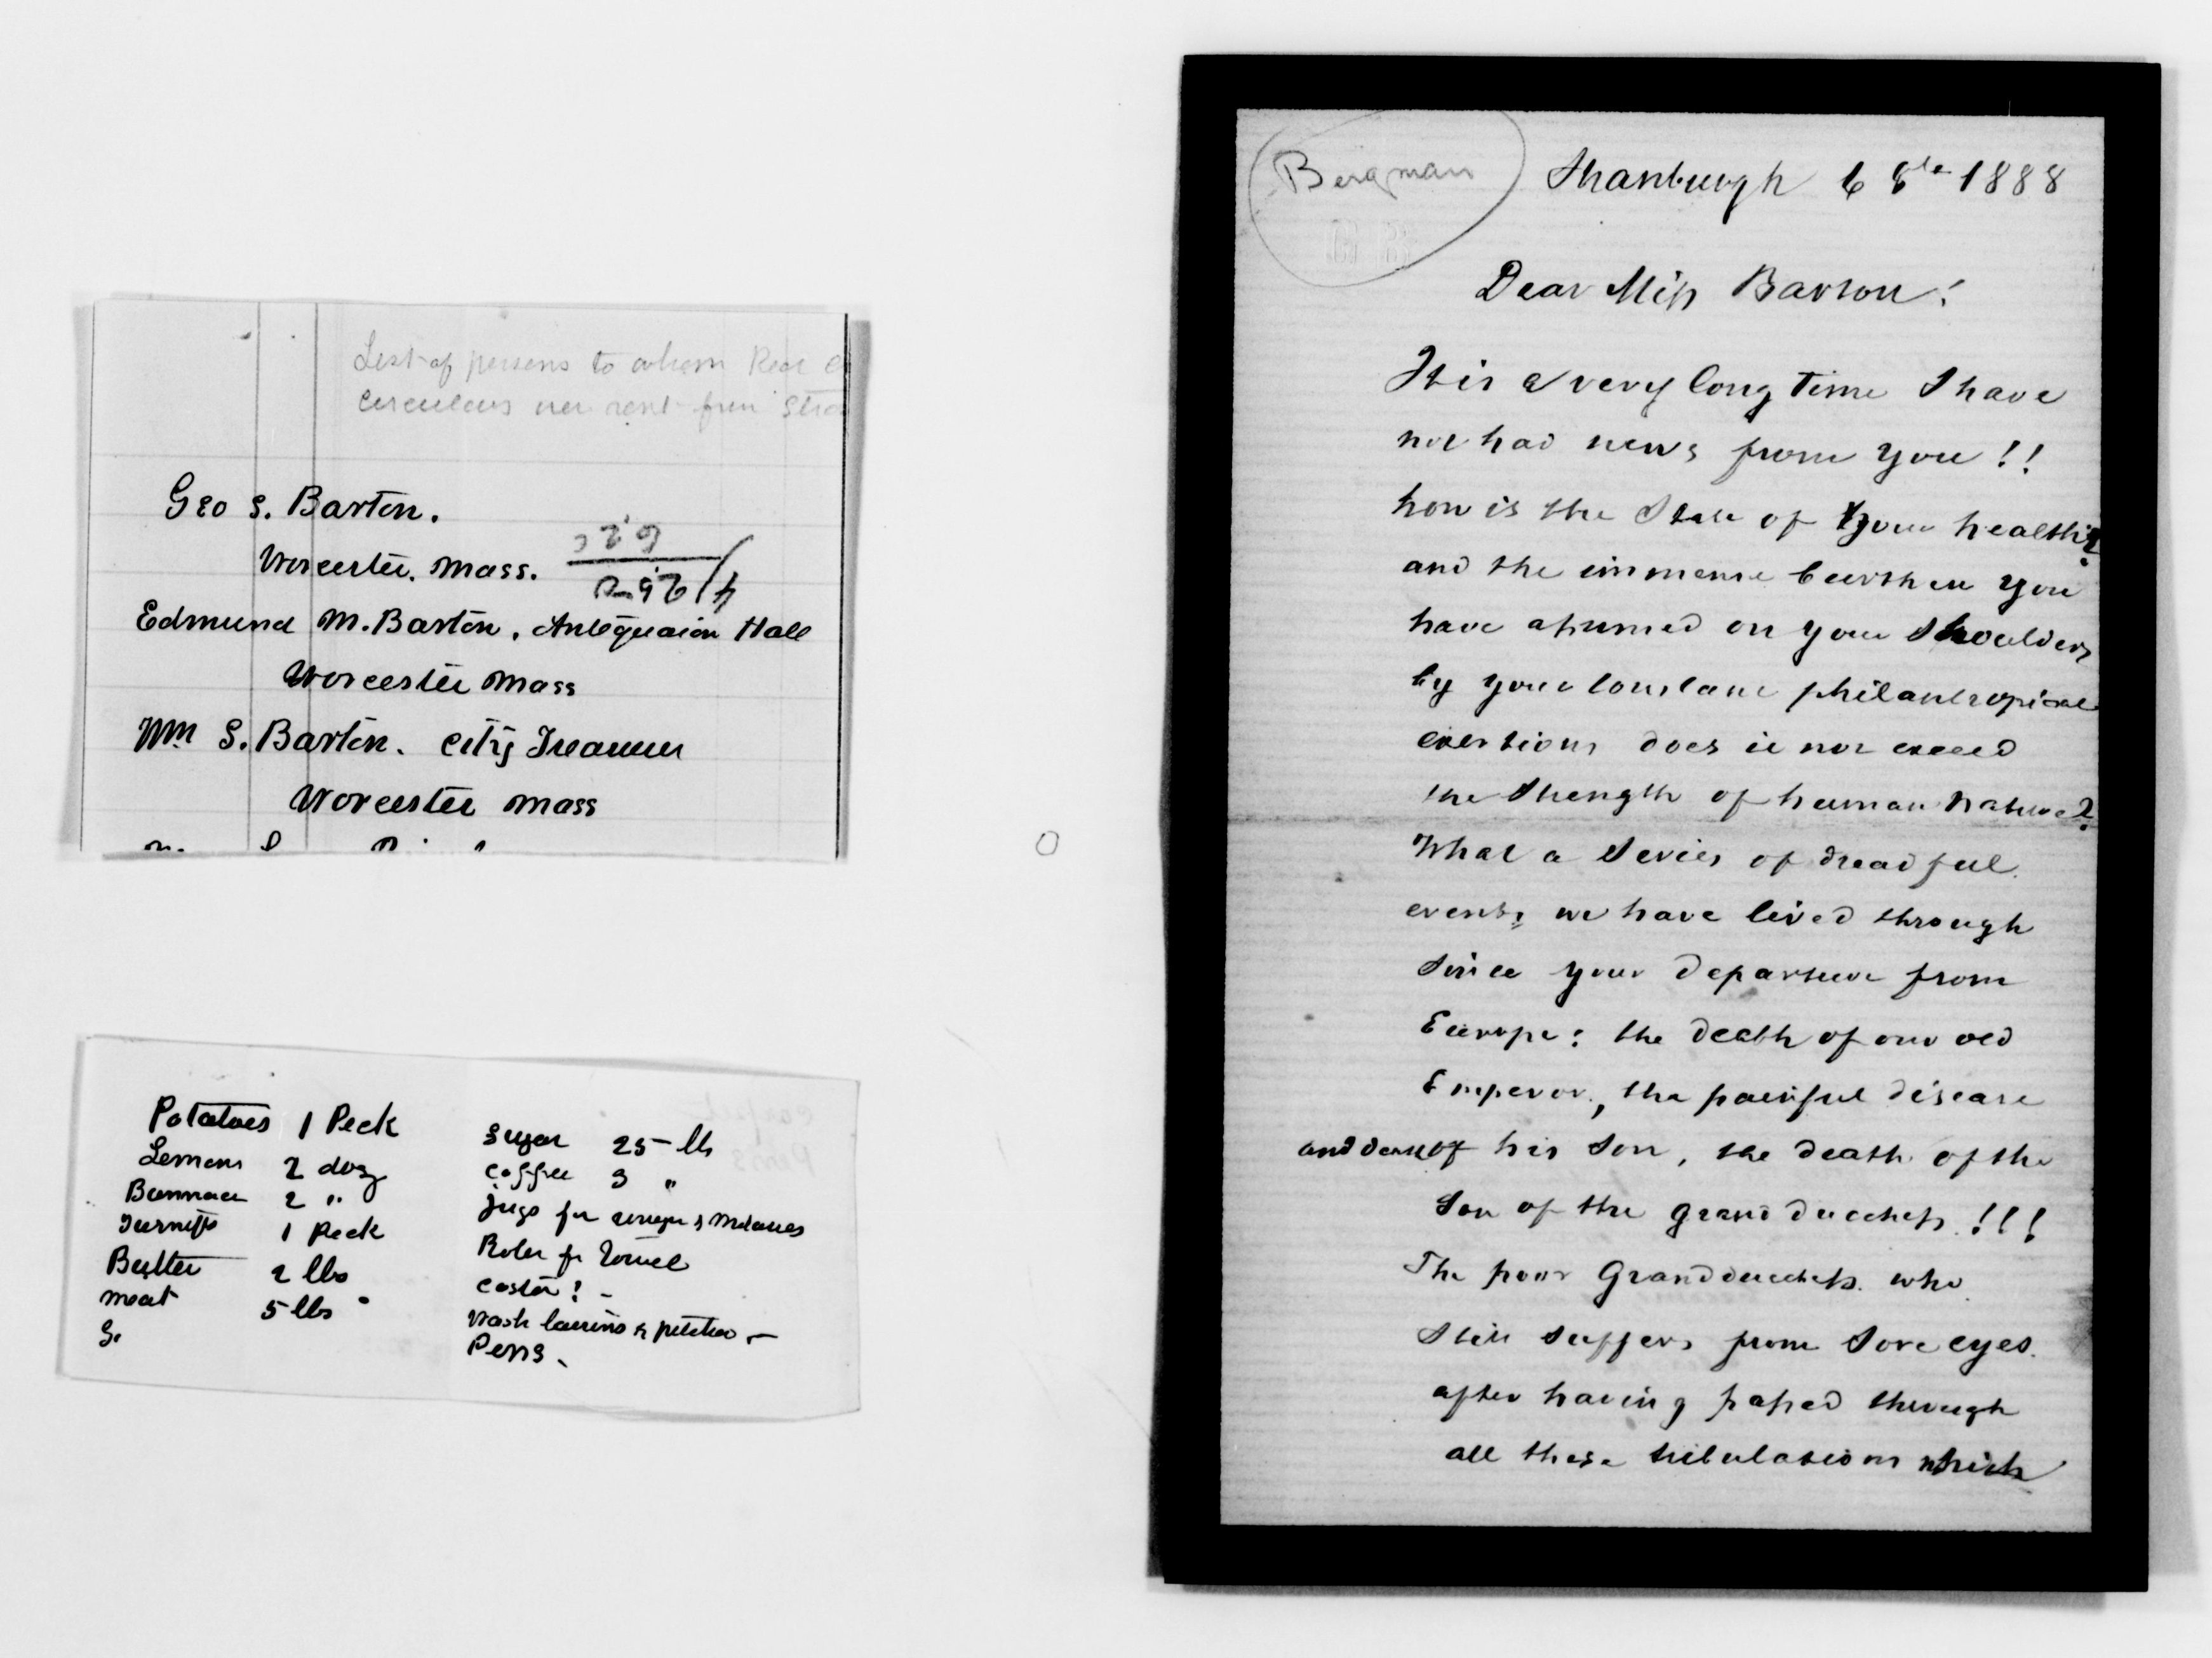 List of persons to whom Red
circulars were sent from
Geo S. Barton.
Worcester. Mass.
Edmund M. Barton, Antiquarian Hall
Worcester Mass
Wm S. Barton. City Treasurer
Worcester Mass
Potatoes 1 Peck
Lemons 2 doz
2 "
Turnips 1 Peck
Butter 2 lbs
meat 5 lbs
Sugar 25 lbs
Coffee 3 "
jugs for vinegar & Molasses
Roler for Towel
Castor! -
Wash basins & pitcher -
Pens.
Bergman
Strasburgh 6 8te 1888
Dear Miss Barton!
It is a very long time I have
not had news from you!!
how is the State of your health?
and the immense burthen you
have assumed on your shoulders
by your constant philantropical
exertions does it not exceed
the strength of human nature?
What a series of dreadful
events we have lived through
since your departure from
Europe: the death of our old
Emperor, the painful disease
and death of his son, the death of the
son of the grand duchess!!!
The poor Grandduchess who
still suffers from sore eyes.
after having passed through
all these tribulations which